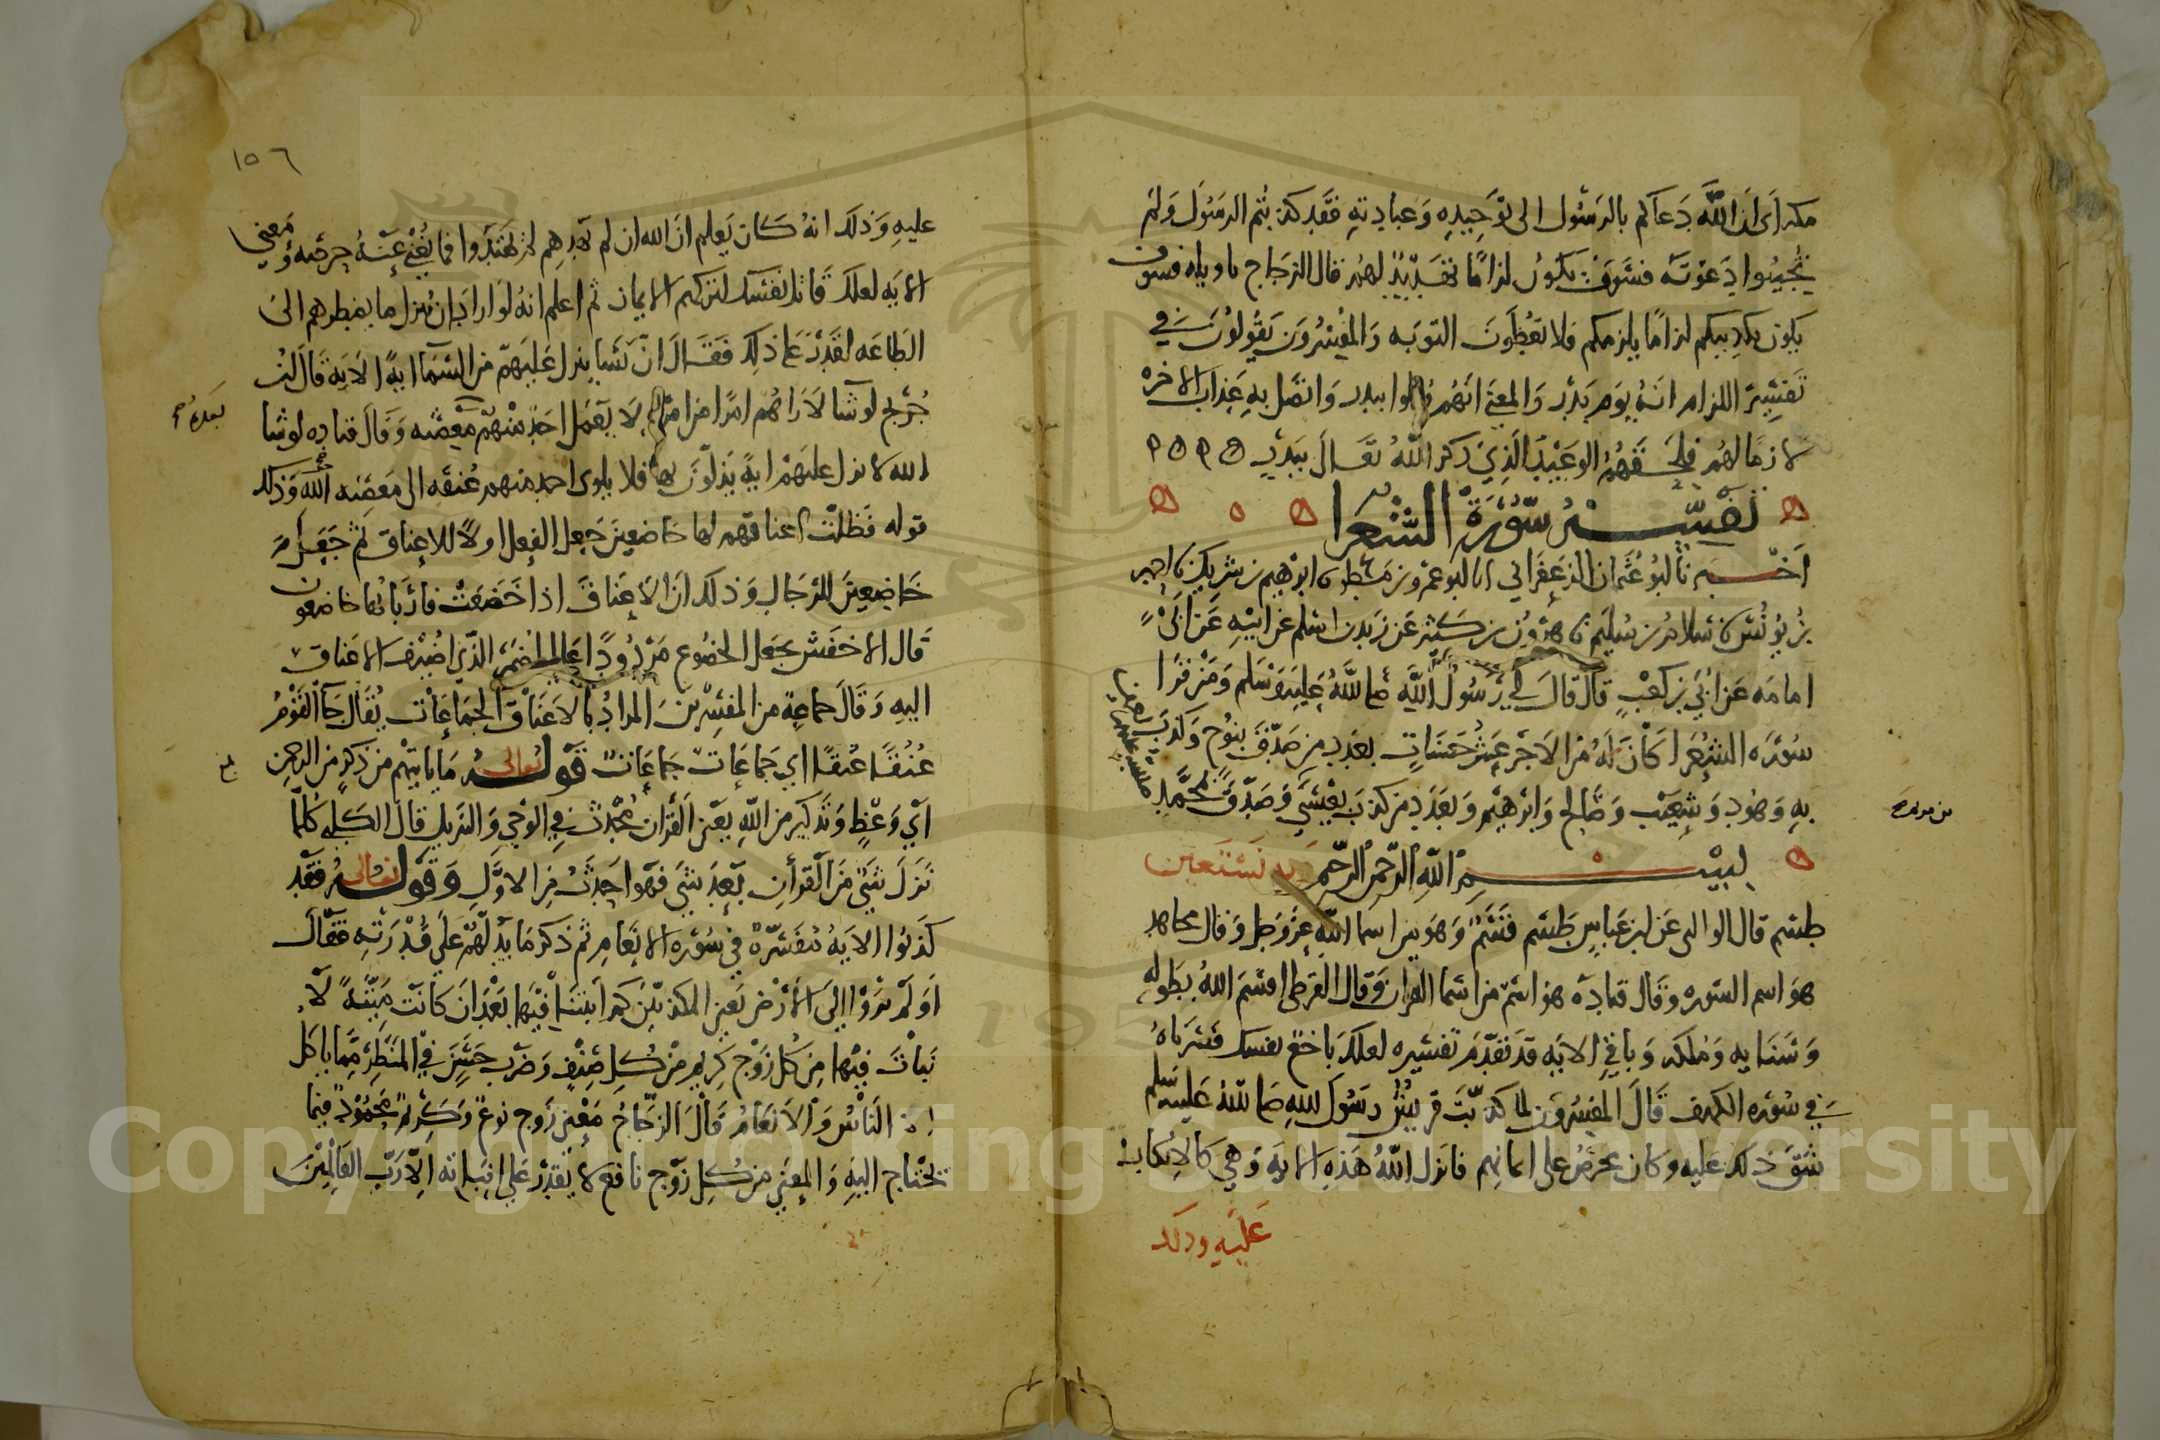 مكه اى ان الله دعاكم بالرسول الى توحيده وعبادته فقد كذبتم الرسول ولم
تجيبوا دعوته فسوف يكون لزاما تهديد لهم قال الزجاج تاويله فسوف
يكون تكذيبكم لزاما يلزمكم فلا تعطون التوبه والمفسرون يقولون في
تفسير اللزام انه يوم بدر والمعنى انهم قتلوا ببدر واتصل به عذاب الاخره
لازما لهم فلحقهم الوعيد الذي ذكر الله تعالى ببدر
تفسير سورة الشعرا
اخبرنا ابو عثمان الزعفراني انا ابو عمرو بن مطر نا ابرهيم بن شريك نا احمد
بن يونس نا سلام بن سليم نا هرون بن كثير عن زيد بن اسلم عن ابيه عن ابي
امامه عن ابي بن كعب قال قال لي رسول الله صلى الله عليه وسلم ومن قرا
سورة الشعرا كان له من الاجر عشر حسنات بعدد من صدق بنوح وكذب
به وهود وشعيب وصالح وابرهيم وبعدد من كذب بعيسى وصدق بمحمد
بسم الله الرحمن الرحيم وبه نستعين
طسم قال الوالبي عن ابن عباس طسم قسم وهو من اسما الله عز وجل وقال مجاهد
هو اسم السوره وقال قتاده هو اسم من اسما القران وقال القرظي اقسم الله بطوله
وسنايه وملكه وباقي الايه قد تقدم تفسيره لعلك باخع نفسك فسرناه
في سوره الكهف قال المفسرون لما كذبت قريش رسول الله صلى الله عليه وسلم
شق ذلك عليه وكان يحرص على ايمانهم فانزل الله هذه الايه وهي كالانكار
عليه وذلك
١٥٦
عليه وذلك انه كان يعلم ان الله ان لم يهدهم لم يهتدوا فما يغني عنه حرصه ومعنى
الايه لعلك قاتل نفسك لتركهم الايمان ثم اعلم انه لو اراد ان ينزل ما يضطرهم الى
الطاعه لقدر على ذلك فقال ان نشا ينزل عليهم من السما ايه الايه قال ابن
جريج لو شا لاراهم امرا من امره لا يعمل احد منهم بعده معصيه وقال قتاده لو شا
الله لانزل عليهم ايه يذلون بها فلا يلوى احد منهم عنقه الى معصيه الله وذلك
قوله فظلت اعناقهم لها خاضعين جعل الفعل اولا للاعناق ثم جعل
خاضعين للرجال وذلك ان الاعناق اذا خضعت فاربابها خاضعون
قال الاخفش يجعل الخضوع مردودا على المضمر الذي اضيف الاعناق
اليه وقال جماعة من المفسرين المراد بالاعناق الجماعات يقال جا القوم
عنقا عنقا اي جماعات جماعات قوله تعالى ما ياتيهم من ذكر من الرحمن
اي وعظ وتذكير من الله يعني القران محدث في الوحي والتنزيل قال الكلبي كلما
نزل شي من القرأن بعد شي فهو احدث من الاول وقوله تعالى فقد
كذبوا الايه مفسره في سوره الانعام ثم ذكر ما يدلهم على قدرته فقال
اولم يروا الى الارض يعني المكذبين كم انبتنا فيها بعد ان كانت ميته لا
نبات فيها من كل زوج كريم من كل صنف وضرب حسن في المنظر مما ياكل
الناس والانعام قال الزجاج معنى زوج نوع وكريم محمود فيما
يحتاج اليه والمعنى من كل زوج نافع لا يقدر على انباته الا رب العالمين
Copyright © King Saud University